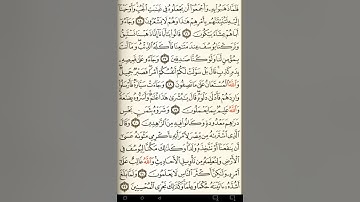 فَلَمَّا ذَهَبُوا۟ بِهِۦ وَأَجْمَعُوٓا۟ أَن يَجْعَلُوهُ فِى غَيَٰبَتِ ٱلْجُبِّ وَأَوْحَيْنَآ
إِلَيْهِ لَتُنَبِّئَنَّهُم بِأَمْرِهِمْ هَٰذَا وَهُمْ لَا يَشْعُرُونَ ١٥ وَجَآءُوٓ
أَبَاهُمْ عِشَآءً يَبْكُونَ ١٦ قَالُوا۟ يَٰٓأَبَانَآ إِنَّا ذَهَبْنَا نَسْتَبِقُ
وَتَرَكْنَا يُوسُفَ عِندَ مَتَٰعِنَا فَأَكَلَهُ ٱلذِّئْبُ وَمَآ أَنتَ
بِمُؤْمِنٍ لَّنَا وَلَوْ كُنَّا صَٰدِقِينَ ١٧ وَجَآءُو عَلَىٰ قَمِيصِهِۦ
بِدَمٍ كَذِبٍ قَالَ بَلْ سَوَّلَتْ لَكُمْ أَنفُسُكُمْ أَمْرًا فَصَبْرٌ جَمِيلٌ
وَٱللَّهُ ٱلْمُسْتَعَانُ عَلَىٰ مَا تَصِفُونَ ١٨ وَجَآءَتْ سَيَّارَةٌ فَأَرْسَلُوا۟
وَارِدَهُمْ فَأَدْلَىٰ دَلْوَهُۥ قَالَ يَٰبُشْرَىٰ هَٰذَا غُلَٰمٌ وَأَسَرُّوهُ بِضَٰعَةً
وَٱللَّهُ عَلِيمٌۢ بِمَا يَعْمَلُونَ ١٩ وَشَرَوْهُ بِثَمَنٍۭ بَخْسٍ
دَرَٰهِمَ مَعْدُودَةٍ وَكَانُوا۟ فِيهِ مِنَ ٱلزَّٰهِدِينَ ٢٠ وَقَالَ
ٱلَّذِى ٱشْتَرَىٰهُ مِن مِّصْرَ لِٱمْرَأَتِهِۦٓ أَكْرِمِى مَثْوَىٰهُ عَسَىٰٓ
أَن يَنفَعَنَآ أَوْ نَتَّخِذَهُۥ وَلَدًا وَكَذَٰلِكَ مَكَّنَّا لِيُوسُفَ فِى
ٱلْأَرْضِ وَلِنُعَلِّمَهُۥ مِن تَأْوِيلِ ٱلْأَحَادِيثِ وَٱللَّهُ غَالِبٌ عَلَىٰٓ
أَمْرِهِۦ وَلَٰكِنَّ أَكْثَرَ ٱلنَّاسِ لَا يَعْلَمُونَ ٢١ وَلَمَّا بَلَغَ
أَشُدَّهُۥٓ ءَاتَيْنَٰهُ حُكْمًا وَعِلْمًا وَكَذَٰلِكَ نَجْزِى ٱلْمُحْسِنِينَ ٢٢